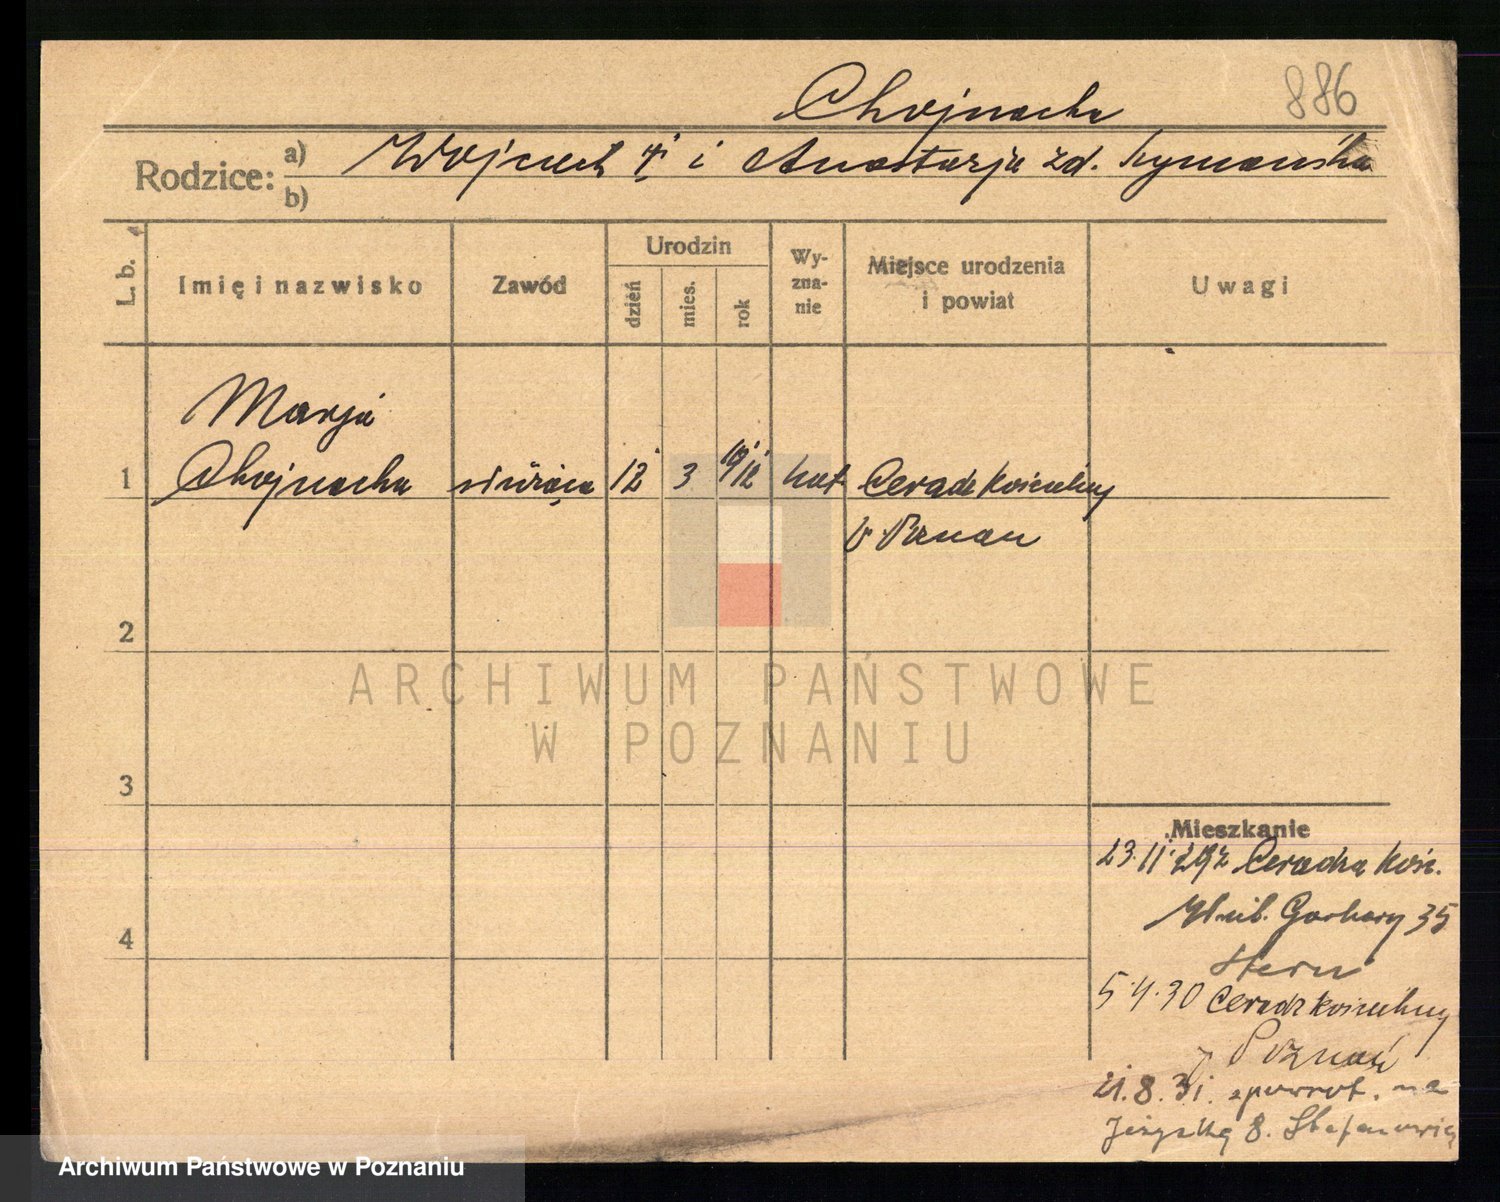 886
Chojnacka
Rodzice: a) Wojciech i Anastazja zd. Szymańska
b)
L. b.
Imię i nazwisko
Zawód
Urodzin
dzień
mies.
rok
Wy-
zna-
nie
Miejsce urodzenia
i powiat
Uwagi
Marja
1 Chojnacka służąca 12 3 1912 kat Ceradz Kościelny
Poznań
2
ARCHIWUM PAŃSTWOWE
W POZNANIU
3
Mieszkanie
23.11.
Garbary 35
Stern
4
5.4.30 Ceradz Kościelny
Poznań
21.8.31. spowrot. na
8. Stefanowicz
Archiwum Państwowe w Poznaniu